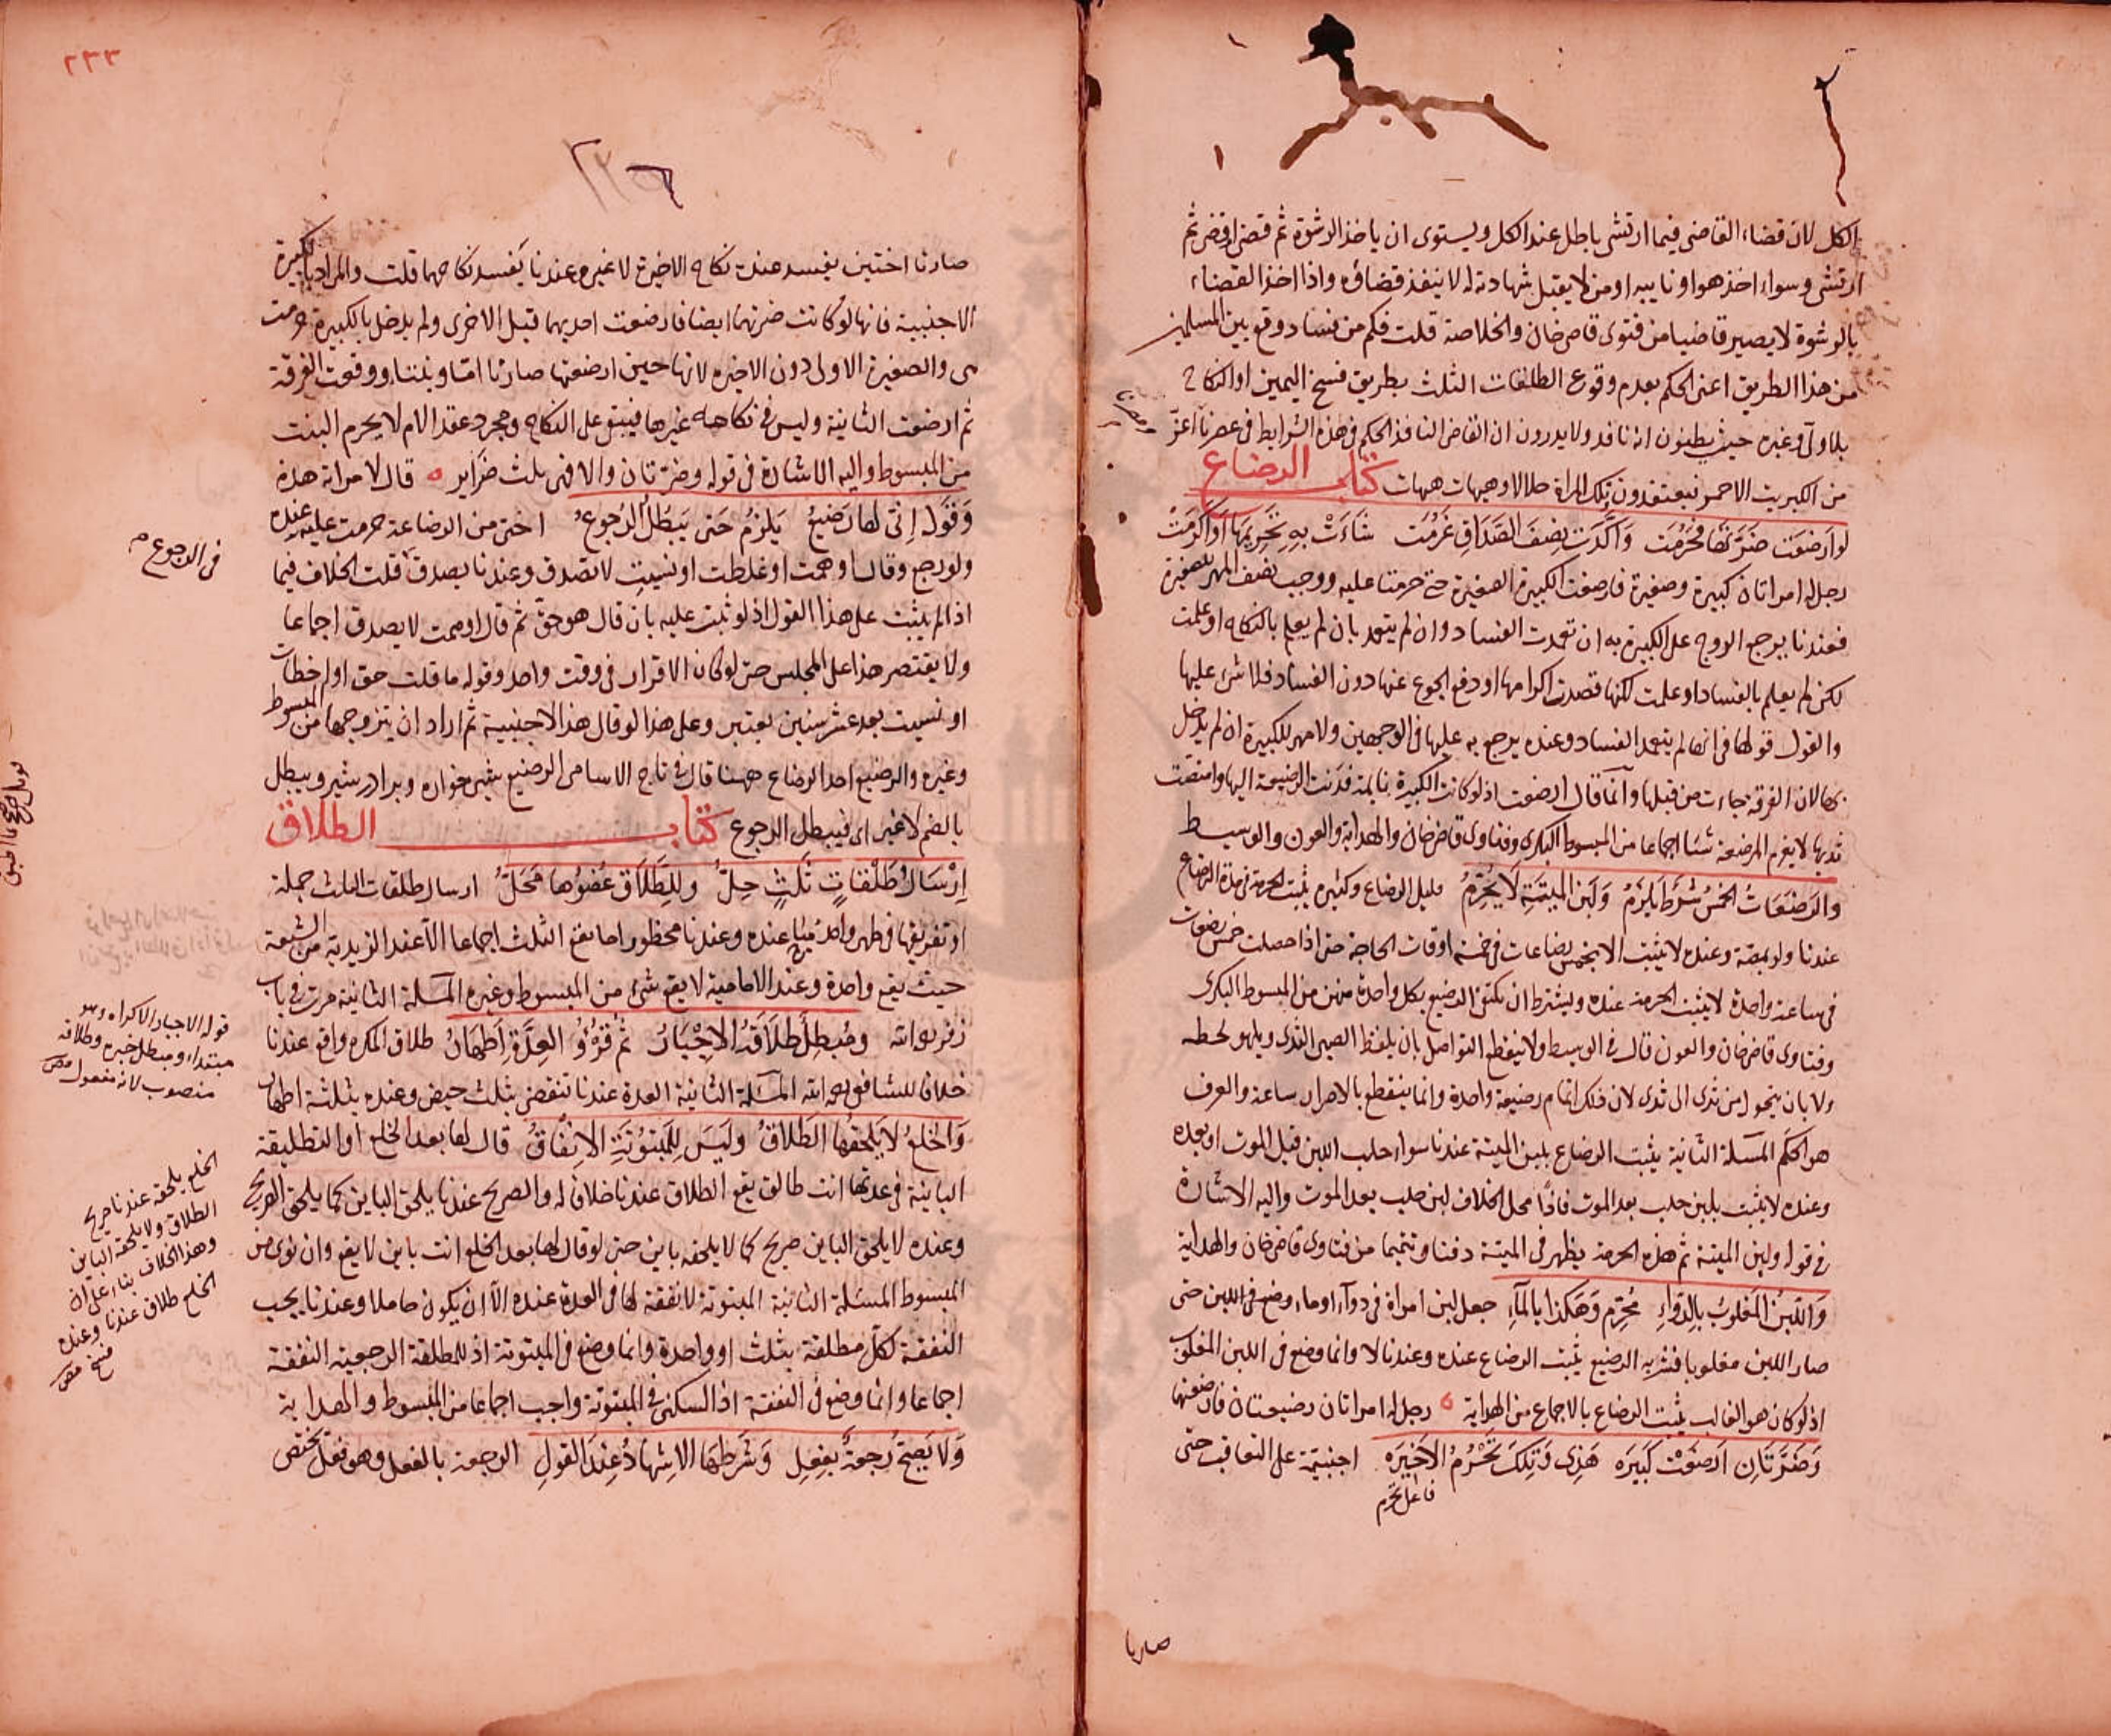 الكل لان قضاء القاضى فيما ارتشى باطل عند الكل ويستوى ان ياخذ الرشوة ثم قضى او قضى ثم
ارتشى وسواء اخذ هو او نايبه او من لا يقبل شهادته له لا ينفذ قضاؤه واذا اخذ القضاء
بالرشوة لا يصير قاضيا من فتوى قاضى خان والخلاصة قلت فكم من فساد وقع بين المسلمين
من هذا الطريق اعنى الحكم بعدم وقوع الطلقات الثلث بطريق فسخ اليمين او النكاح
بلا ولى وغيره حيث يظنون انه نافذ ولا يدرون ان القاضى النافذ الحكم فى هذه الشرايط فى عصرنا اعز
من الكبريت الاحمر فيعتقدون تلك المراة حلالا وهيهات هيهات كتاب الرضاع
لو ارضعت ضرتها فحرمت واكدت نصف الصداق غرمت شاءت به تحريمها او اكرمت
رجل له امراتان كبيرة وصغيرة فارضعت الكبيرة الصغيرة حتى حرمتا عليه ووجب نصف المهر للصغيرة
فعندنا يرجع الزوج على الكبيرة به ان تعمدت الفساد وان لم يتعمد بان لم يعلم بالنكاح او علمت
لكن لم يعلم بالفساد او علمت لكنها قصدت اكرامها او دفع الجوع عنها دون الفساد فلا شئ عليها
والقول قولها فى انها لم يتعمد الفساد وعنده يرجع به عليها فى الوجهين ولا مهر للكبيرة ان لم يدخل
بها لان الفرقة جاءت من قبلها وانما قال ارضعت اذ لو كانت الكبيرة نايمة فدنت الرضيعة اليها وامتصت
ثديها لا يغرم المرضعة شئا اجماعا من المبسوط البكرى وفتاوى قاضى خان والهداية والعون والوسيط
والرضعات الخمس شرط يلزم ولبن الميتة لا يحرم قليل الرضاع وكثيره يثبت الحرمة فى مدة الرضاع
عندنا ولو بمصة وعنده لا يثبت الا بخمس رضاعات فى خمسة اوقات الحاجة حتى اذا حصلت خمس رضعات
فى ساعة واحدة لا يثبت الحرمة عنده ويشترط ان يكتفى الرضيع بكل واحدة منهن من المبسوط البكرى
وفتاوى قاضى خان والعون قال فى الوسيط ولا ينقطع التواصل بان يلفظ الصبى الثدى ويلهو لحظة
ولا بان يتحول من ثدى الى ثدى لان ذلك اتمام رضيعة واحدة وانما ينقطع بالاضراب ساعة والعرف
هو الحكم المسئلة الثانية يثبت الرضاع بلبن الميتة عندنا سواء حلب اللبن قبل الموت او بعده
وعنده لا يثبت بلبن حلب بعد الموت فاذا محل الخلاف لبن حلب بعد الموت واليه الاشارة
فى قوله ولبن الميتة ثم هذه الحرمة يظهر فى الميتة دفنا وتيمما من فتاوى قاضى خان والهداية
واللبن المغلوب بالدواء محرم وهكذا بالماء جعل لبن امراة فى دواء او ماء وضع فى اللبن حتى
صار اللبن مغلوبا فشربه الرضيع يثبت الرضاع عنده وعندنا لا وانما وضع فى اللبن المغلوب
اذ لو كان هو الغالب يثبت الرضاع بالاجماع من الهداية رجل له امراتان رضيعتان فارضعتهما
وضرتان ارضعت كبيره هذى وتلك تحرم الاخيره اجنبية على التعاقب حتى
فاعل تحرم
صارتا
٢٣٣
صارتا اختين يفسد عنده نكاح الاخيرة لا غير وعندنا يفسد نكاحهما قلت والمراد بالكبيرة
الاجنبية فانها لو كانت ضرتهما ايضا فارضعت احديهما قبل الاخرى ولم يدخل بالكبيرة حرمت
هى والصغيرة الاولى دون الاخيرة لانها حين ارضعتها صارتا اما وبنتا ووقعت الفرقة
ثم ارضعت الثانية وليس فى نكاحه غيرها فيبقى على النكاح ومجرد عقد الام لا يحرم البنت
من المبسوط واليه الاشارة فى قوله وضرتان والا فهى ثلث ضراير قال لامراته هذه
وقول انى لها رضيع يلزم حتى يبطل الرجوع اختى من الرضاعة حرمت عليه عنده
ولو رجع وقال اوهمت او غلطت او نسيت لا تصدق وعندنا يصدق قلت الخلاف فيما
اذا لم يثبت على هذا القول اذ لو ثبت عليه بان قال هو حق ثم قال اوهمت لا يصدق اجماعا
ولا يقتصر هذا على المجلس حتى لو كان الاقرار فى وقت واحد وقوله ما قلت حق او اخطات
او نسيت بعد عشر سنين يعتبر وعلى هذا لو قال هذا لاجنبية ثم اراد ان يتزوجها من المبسوط
وغيره والرضيع احد الرضاع ههنا قال فى تاج الاسامى الرضيع بشير خواره وبرادر بشير ويبطل
بالضم لا غير اى فيبطل الرجوع كتاب الطلاق
ارسال طلقات ثلث حل وللطلاق عضوها محل ارسال طلقات الثلث جملة
او تفريقها فى طهر واحد مباح عنده وعندنا محظور اما يقع الثلث اجماعا الا عند الزيدية من الشيعة
حيث يقع واحدة وعند الامامية لا يقع شئ من المبسوط وغيره المسئلة الثانية مرت فى باب
زفر رحمه الله ومبطل طلاقه الاجبار ثم قروء العدة اطهار طلاق المكره واقع عندنا
خلافا للشافعى رحمه الله المسئلة الثانية العدة عندنا تنقضى بثلث حيض وعنده بثلثة اطهار
والخلع لا يلحقها الطلاق وليس للمبتوتة الانفاق قال لها بعد الخلع او التطليقة
الباينة فى عدتها انت طالق يقع الطلاق عندنا خلافا له والصريح عندنا يلحق الباين كما يلحق الصريح
وعنده لا يلحق الباين صريح كما لا يلحقه باين حتى لو قال لها بعد الخلع انت باين لا يقع وان نوى من
المبسوط المسئلة الثانية المبتوتة لا نفقة لها فى العدة عنده الا ان يكون حاملا وعندنا يجب
النفقة لكل مطلقة بثلث او واحدة وانما وضع فى المبتوتة اذ للمطلقة الرجعية النفقة
اجماعا وانما وضع فى النفقة اذ السكنى فى المبتوتة واجب اجماعا من المبسوط والهداية
ولا يصح رجعة بفعل وشرطها الاشهاد عند القول الرجعة بالفعل وهو فعل يختص
فى الرجوع
قوله الاجبار الاكراه وهو
مبتداء ومبطل خبره وطلاقه
منصوب لانه مفعول
الخلع يلحقه عندنا صريح
الطلاق ولا يلحقه الباين
وهذا الخلاف بناء على ان
الخلع طلاق عندنا وعنده
فسخ